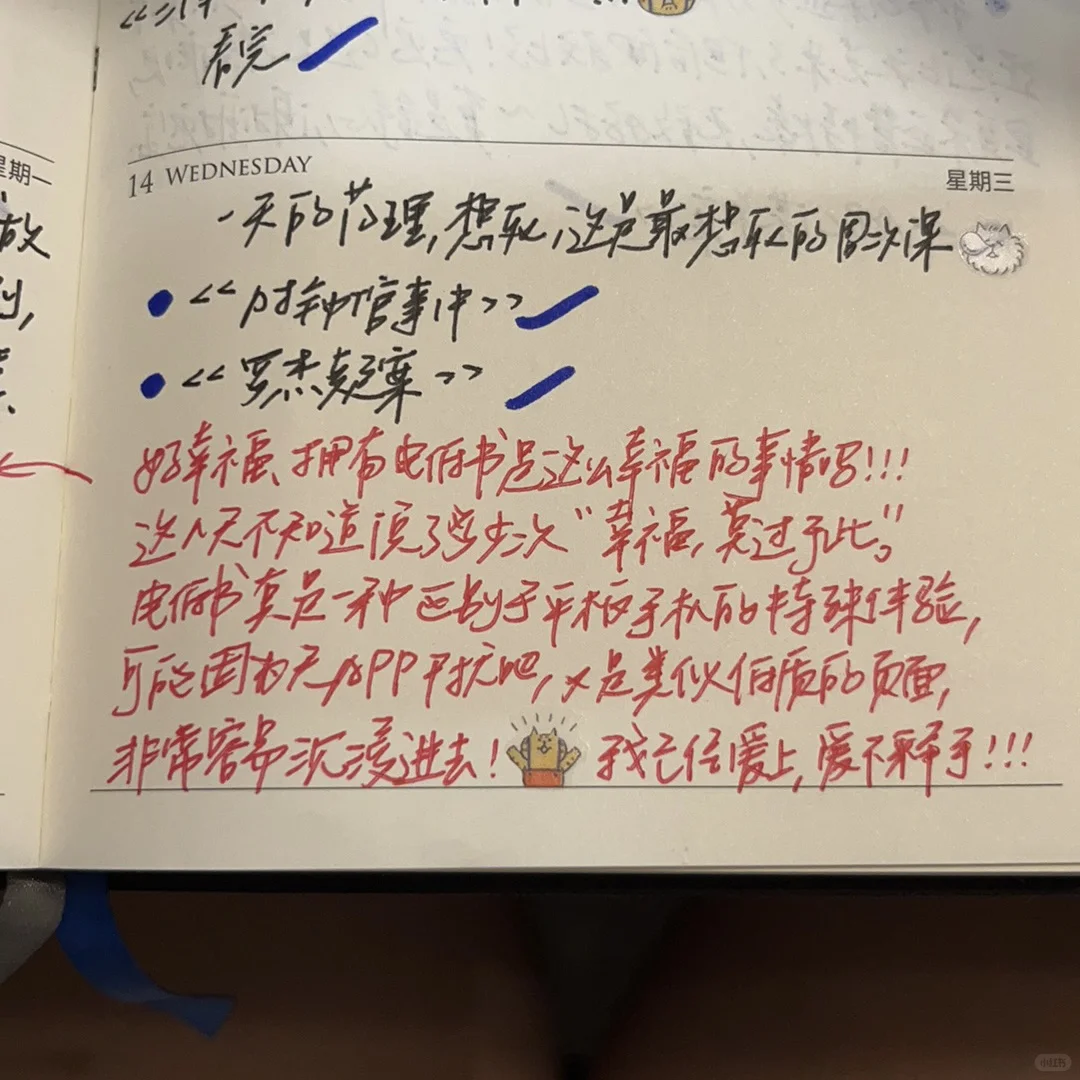 看完
星期一
14 WEDNESDAY
星期三
一天的药理,想死,这是最想死的周次课
• <<时钟馆事件>>
• <<罗杰疑案>>
好幸福、拥有电纸书是这么幸福的事情吗!!!
这几天不知道说了多少次“幸福,莫过于此。”
电纸书真是一种区别于平板手机的特殊体验,
可能因为无APP干扰吧,又是类似纸质的页面,
非常容易沉浸进去! 我已经爱上,爱不释手!!!
小红书